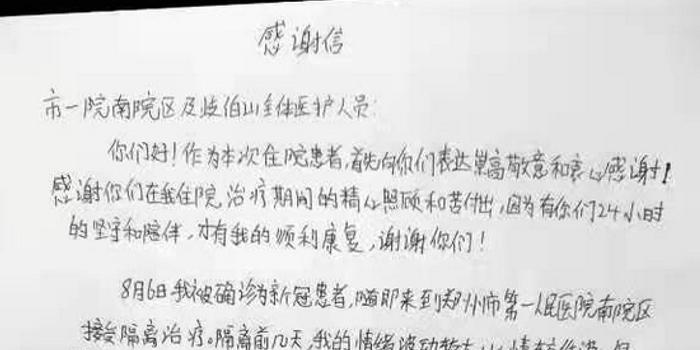 感谢信
市一院南院区及岐伯山全体医护人员:
你们好!作为本次住院患者,首先向你们表达崇高敬意和衷心感谢!
感谢你们在我住院治疗期间的精心照顾和苦付出,因为有你们24小时
的坚守和陪伴,才有我的顺利康复,谢谢你们!
8月6日我被确诊为新冠患者,随即来到郑州市第一人民医院南院区
接受隔离治疗。隔离前几天,我的情绪波动较大